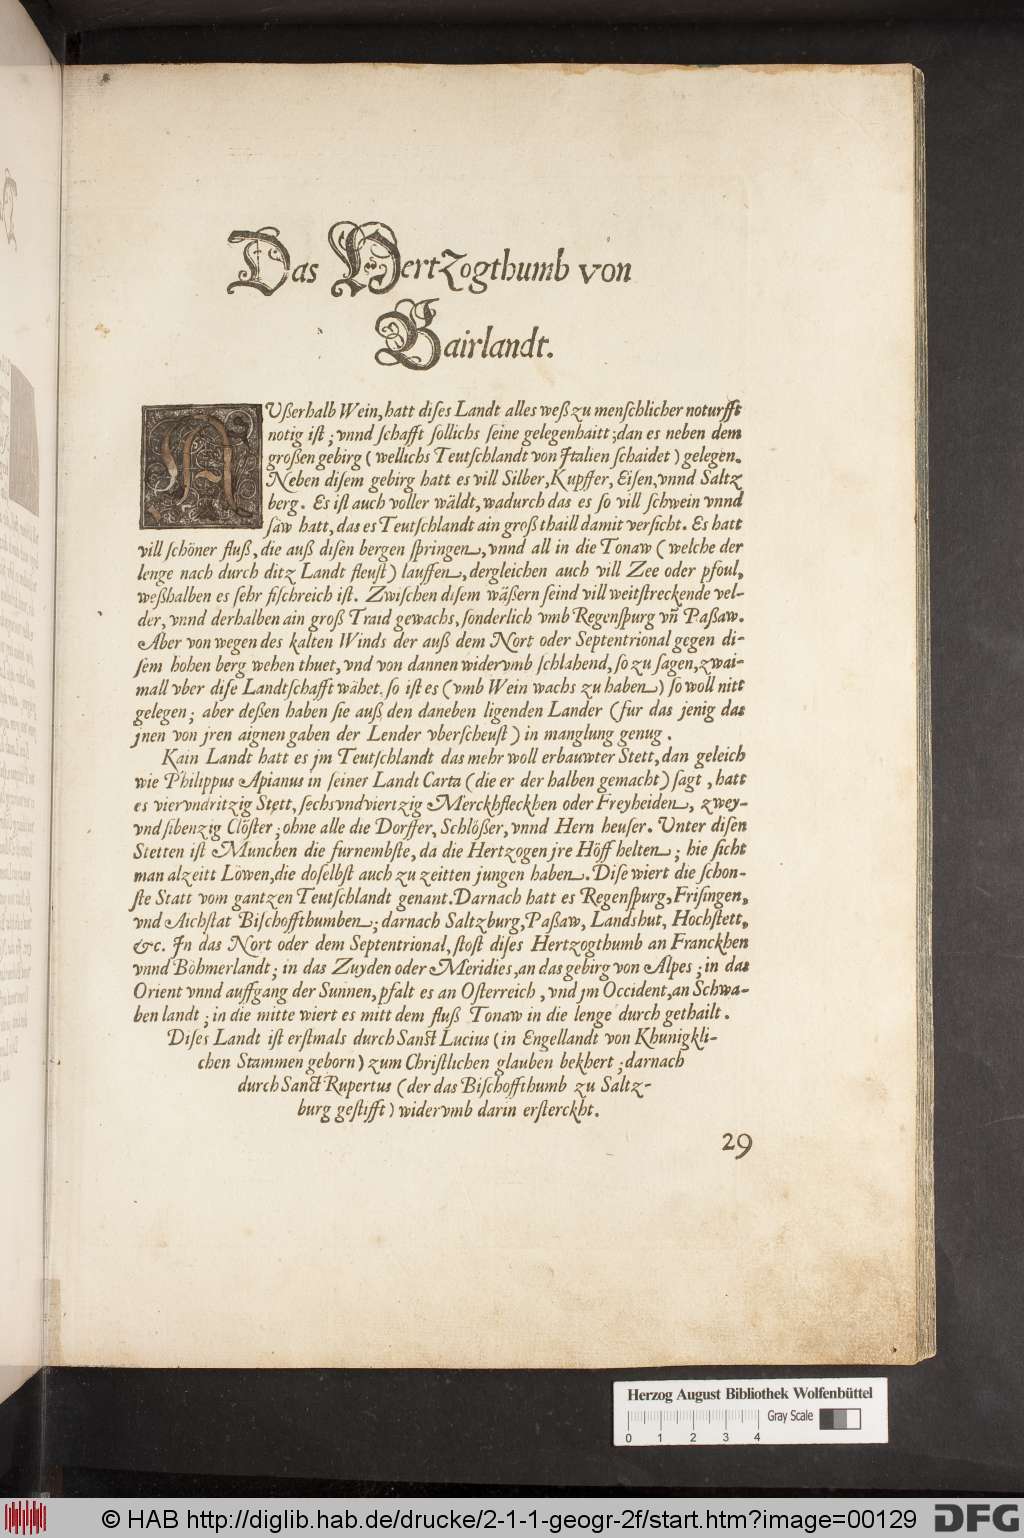 Das Hertzogthumb von
Bairlandt.
AUßerhalb Wein, hatt dises Landt alles weß zu menschlicher noturfft
notig ist ; vnnd schafft sollichs seine gelegenhaitt ; dan es neben dem
großen gebirg ( wellichs Teutschlandt von Jtalien schaidet ) gelegen.
Neben disem gebirg hatt es vill Silber, Kupffer, Eisen, vnnd Saltz
berg. Es ist auch voller wäldt, wadurch das es so vill schwein vnnd
säw hatt, das es Teutschlandt ain groß thaill damit versicht. Es hatt
vill schöner fluß, die auß disen bergen springen, vnnd all in die Tonaw ( welche der
lenge nach durch ditz Landt fleust ) lauffen, dergleichen auch vill Zee oder pfoul,
weßhalben es sehr fischreich ist. Zwischen disem wäßern seind vill weitstreckende vel-
der, vnnd derhalben ain groß Traid gewachs, sonderlich vmb Regenspurg vñ Paßaw.
Aber von wegen des kalten Winds der auß dem Nort oder Septentrional gegen di-
sem hohen berg wehen thuet, vnd von dannen widervmb schlahend, so zu sagen, zwai-
mall vber dise Landtschafft wähet, so ist es ( vmb Wein wachs zu haben ) so woll nitt
gelegen ; aber deßen haben sie auß den daneben ligenden Lander ( fur das jenig das
jnen von jren aignen gaben der Lender vberscheust ) in manglung genug .
Kain Landt hatt es jm Teutschlandt das mehr woll erbauwter Stett, dan geleich
wie Philippus Apianus in seiner Landt Carta ( die er der halben gemacht ) sagt , hatt
es viervndritzig Stett, sechsvndviertzig Merckhfleckhen oder Freyheiden, zwey-
vnd sibenzig Clöster ; ohne alle die Dorffer, Schlößer, vnnd Hern heuser. Vnter disen
Stetten ist Munchen die furnembste, da die Hertzogen jre Höff helten ; hie sicht
man alzeitt Löwen, die doselbst auch zu zeitten jungen haben. Dise wiert die schon-
ste Statt vom gantzen Teutschlandt genant. Darnach hatt es Regenspurg, Frisingen,
vnd Aichstat Bischoffthumben ; darnach Saltzburg, Paßaw, Landshut, Hochstett,
&c. Jn das Nort oder dem Septentrional, stost dises Hertzogthumb an Franckhen
vnnd Böhmerlandt ; in das Zuyden oder Meridies, an das gebirg von Alpes ; in das
Orient vnnd auffgang der Sunnen, pfalt es an Osterreich , vnd jm Occident, an Schwa-
ben landt ; in die mitte wiert es mitt dem fluß Tonaw in die lenge durch gethailt .
Dises Landt ist erstmals durch Sanct Lucius ( in Engellandt von Khunigkli-
chen Stammen geborn ) zum Christlichen glauben bekhert ; darnach
durch Sanct Rupertus ( der das Bischoffthumb zu Saltz-
burg gestifft ) widervmb darin ersterckht .
29
Herzog August Bibliothek Wolfenbüttel
0 1 2 3 4 Gray Scale
© HAB http://diglib.hab.de/drucke/2-1-1-geogr-2f/start.htm?image=00129
DFG